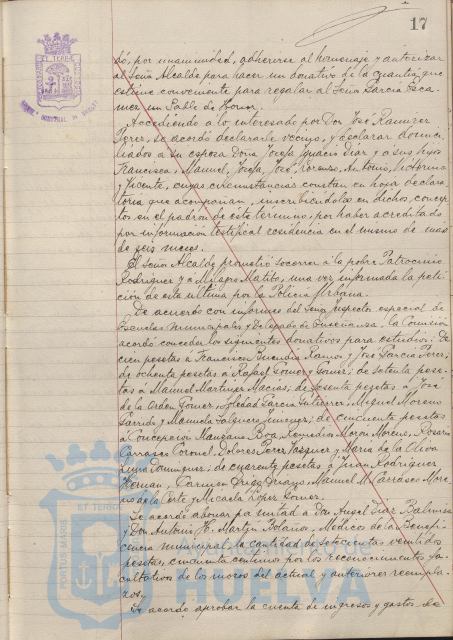 17
dó, por unanimidad, adherirse al homenaje y autorizar
al Señor Alcalde para hacer un donativo de la cuantía que
estime conveniente para regalar al Señor García Esca-
mez un Sable de Honor.
Accediendo a lo interesado por Don José Ramirez
Perez, se acordó declararle vecino, y declarar domici-
liados a su esposa Doña Josefa Ignacio Diaz y a sus hijos
Francisca, Manuel, Josefa, José, Lorenzo, Antonio, Victorina
y Vicente, cuyas circunstancias constan en hoja declara-
toria que acompañan, inscribiéndolos en dichos concep-
tos en el padrón de este término, por haber acreditado
por información testifical residencia en el mismo de mas
de seis meses.
El Señor Alcalde prometió socorrer a la pobre Patrocinio
Rodriguez y a Milagros Matito, una vez informada la peti-
ción de esta última por la Policia Urbana.
De acuerdo con informes del Señor Inspector especial de
Escuelas Municipales y Delegado de Enseñanza, la Comisión
acordó conceder los siguientes donativos para estudios: De
cien pesetas á Francisco Ramos y José Garcia Perez;
de ochenta pesetas a Rafael Gomez Gomez; de setenta pese-
tas á Manuel Martinez Macias; de sesenta pesetas á José
de la Orden Gomez, Soledad Garcia Gutierrez, Miguel Moreno
Garrido y Manuela Jimenez; de cincuenta pesetas
á Concepcion Boa, Remedios Moron Moreno, Rosario
Carrasco Coronel, Dolores Perez Vazquez y Maria de la Oliva
Dominguez; de cuarenta pesetas á Juan Rodriguez
Carmen Manuel M. Carrasco More-
no de la Corte y Micaela Lopez Gomez.
Se acordó abonar por mitad a Don Angel Diaz
y Don Antonio H. Martin Bolaños, Médicos de la Benefi-
cencia municipal la cantidad de setecientas veintidos
pesetas, cincuenta centimos por los reconocimientos fa-
cultativos de los mozos del actual y anteriores reempla-
zos,
Se acordó aprobar la cuenta de ingresos y gastos de
PORTUS MARIS
ET TERRE
Ayuntamiento de
HUELVA